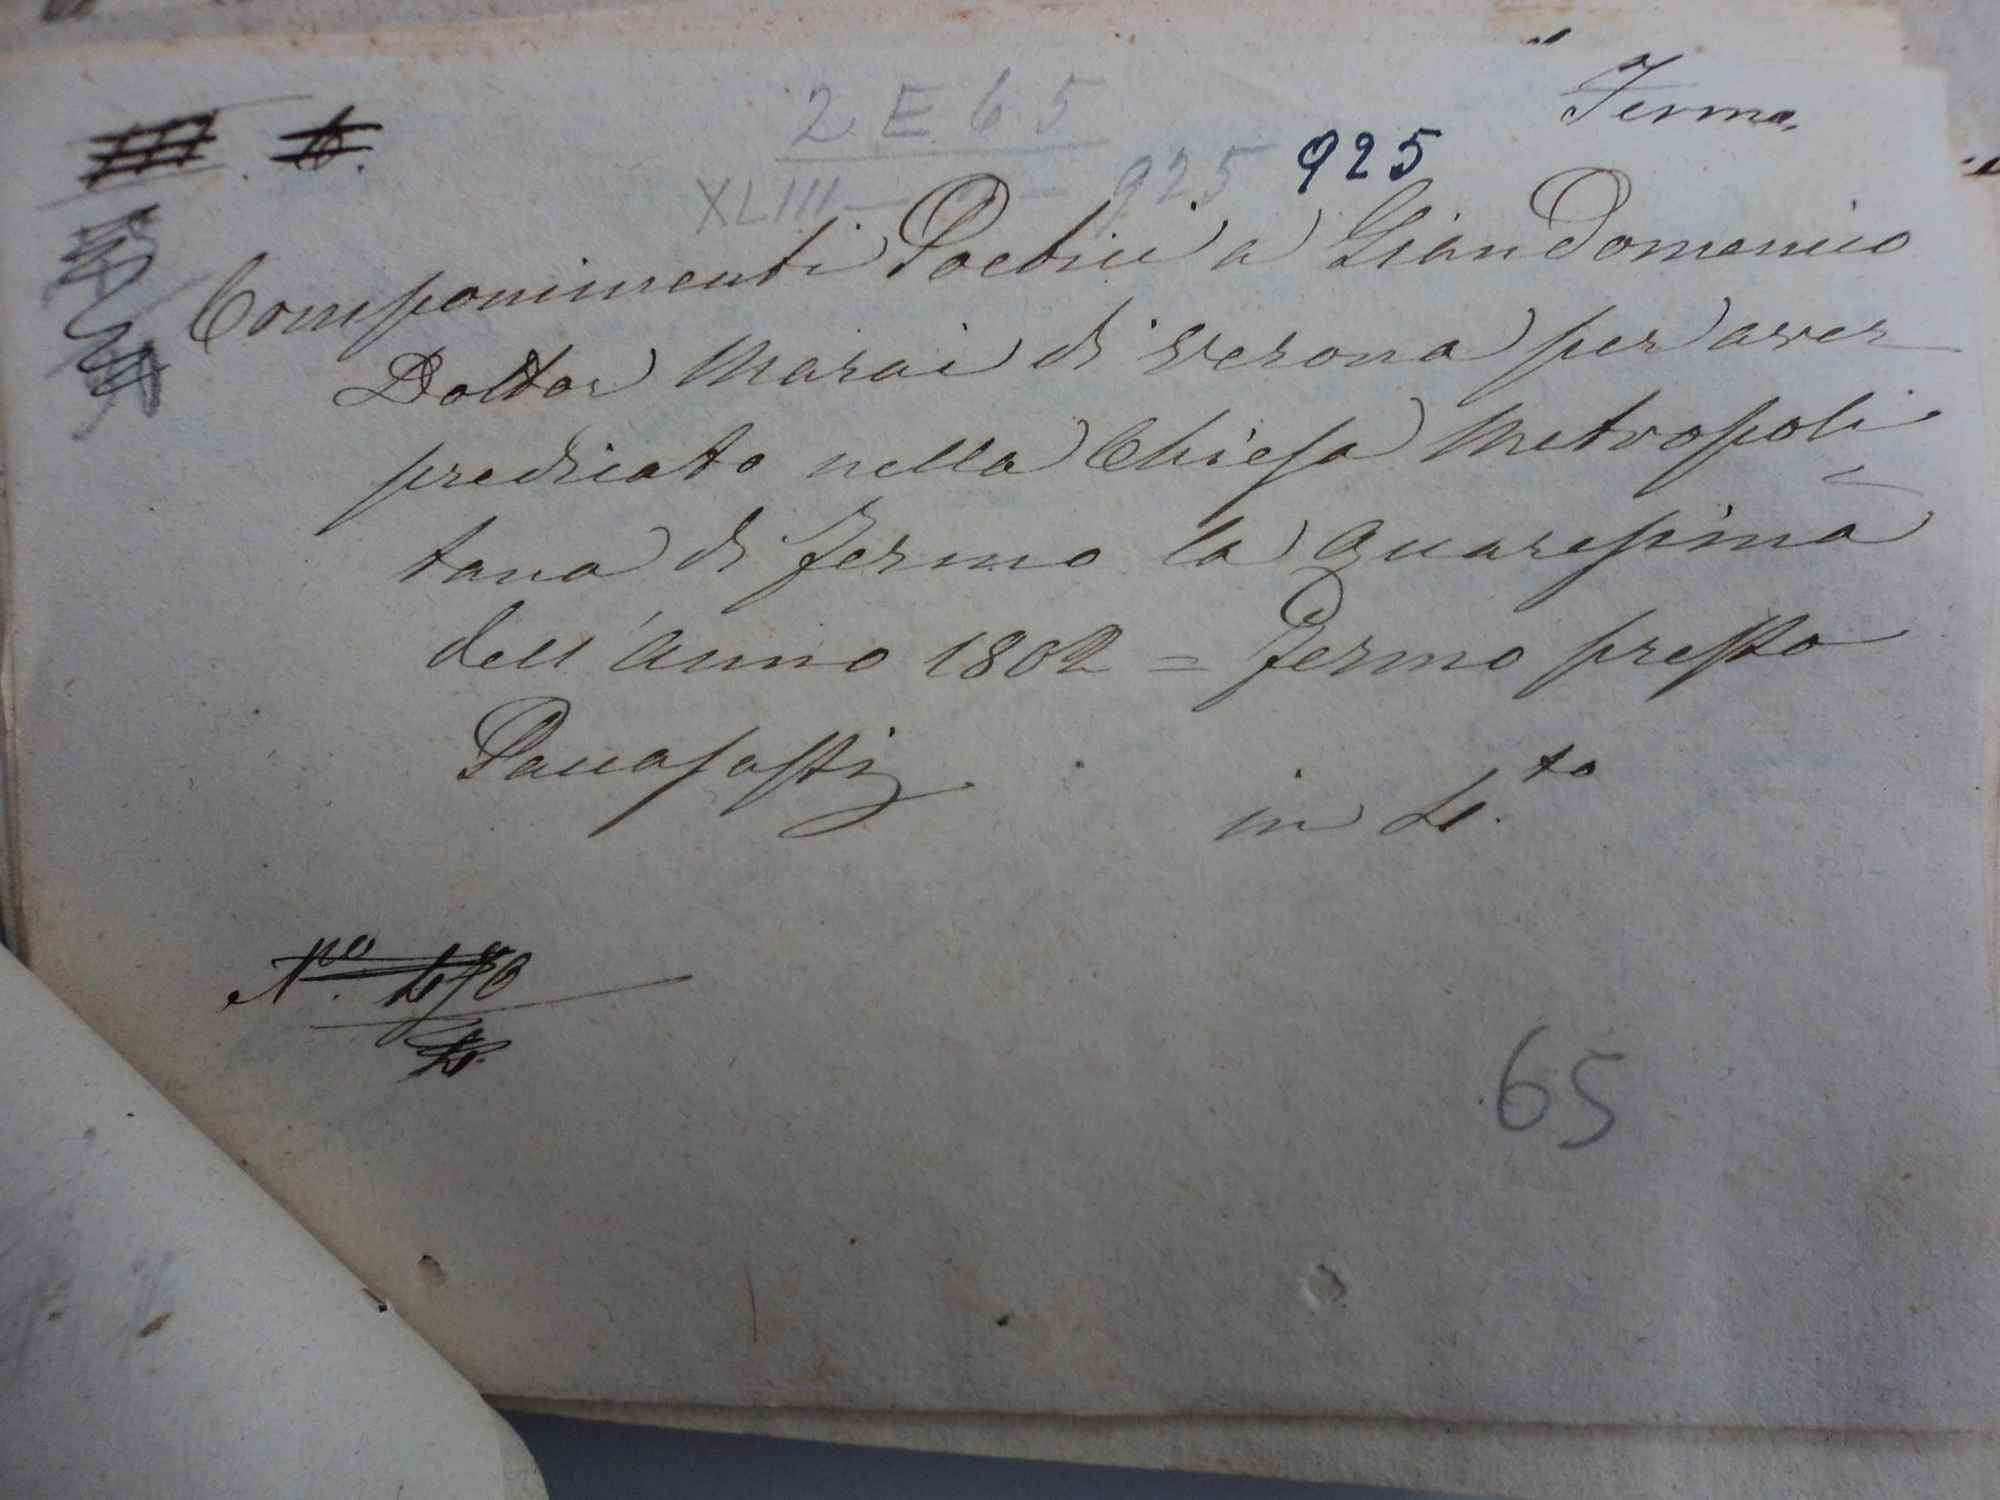 Fermo.
2 E 65
XLIII — 925 925
Componimenti Poetici a Gian Domenico
Dottor Marai di Verona per aver
predicato nella Chiesa Metropoli
tana di Fermo la Quaresima
dell'Anno 1802 = Fermo presso
Paccasassi
in 4.to
No. 470
65